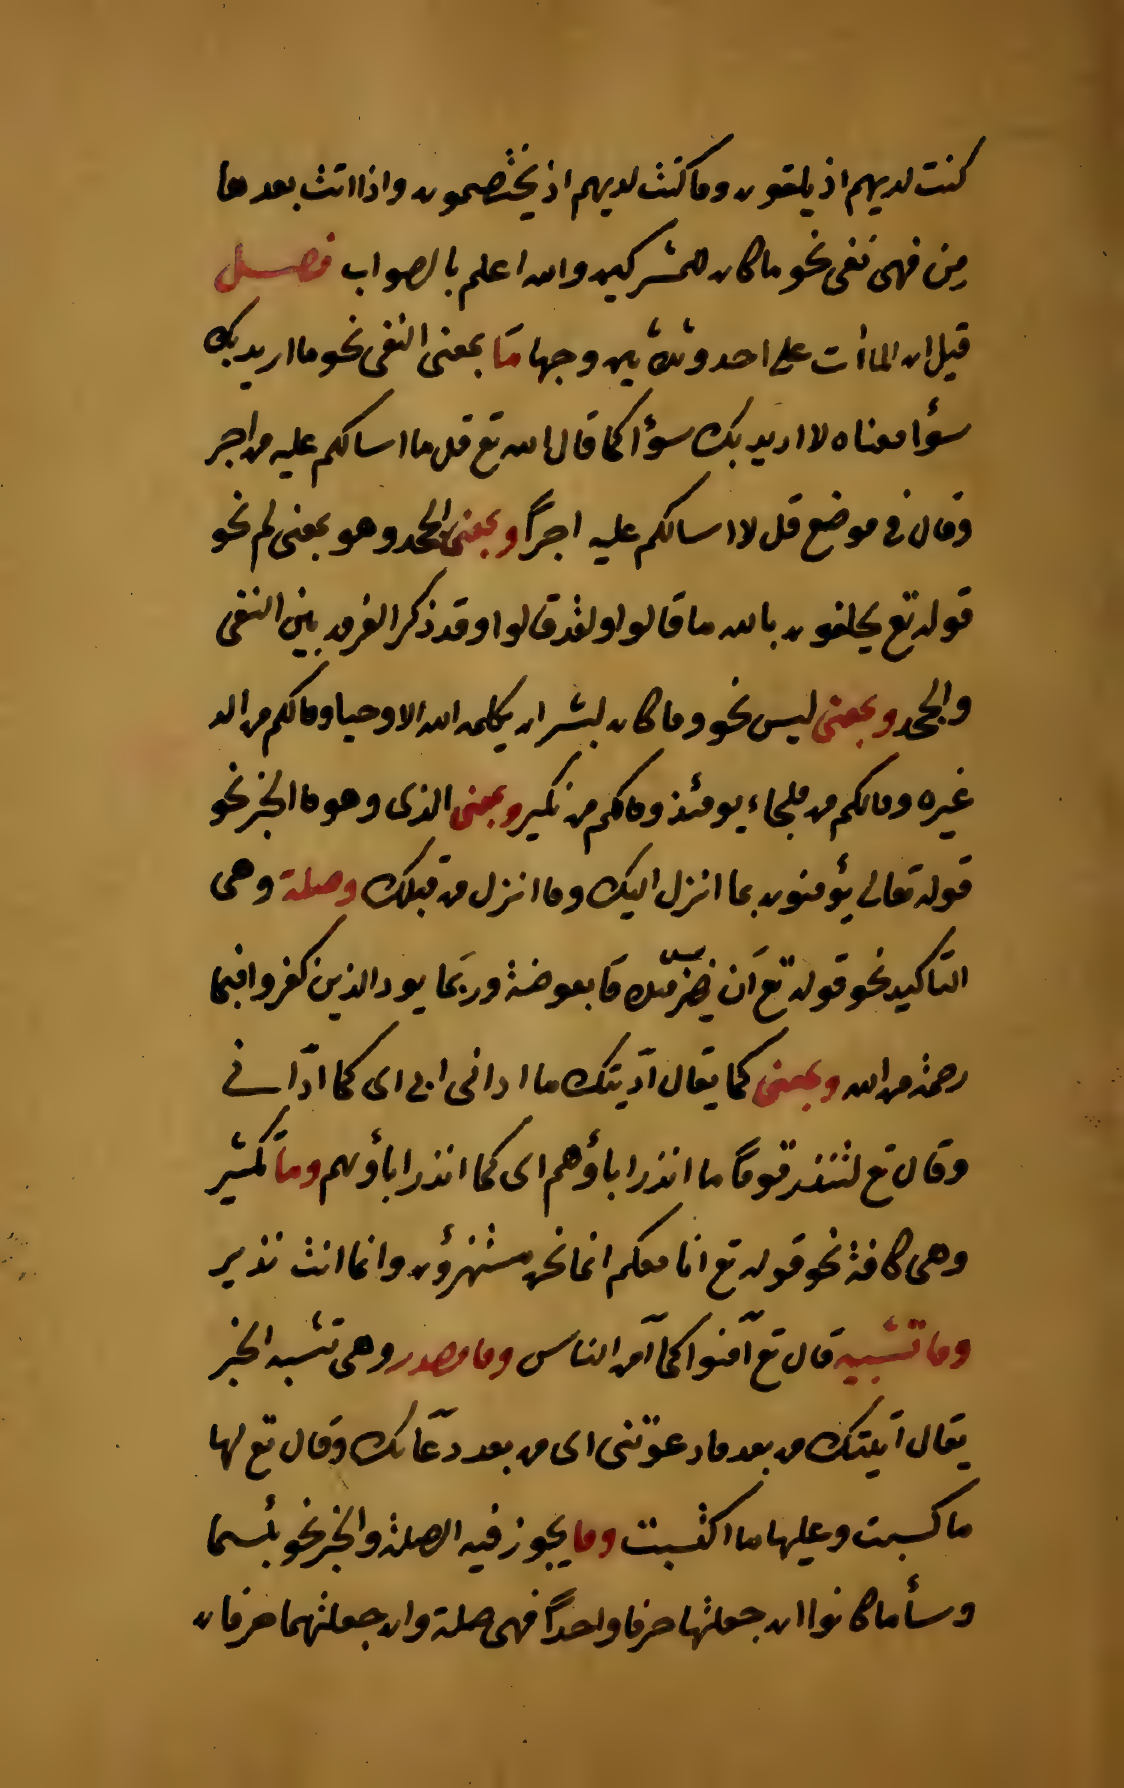 كنت لديهم اذ يلقون وما كنت لديهم اذ يختصمون واذا اتت بعدها
مِن فهى نفى نحو ما كان للمشركين والله اعلم بالصواب فصل
قيل ان الماأت على احد وثلثين وجها مَا بمعنى النفى نحو ما اريد بك
سؤا معناه لا اريد بك سؤا كما قال الله تع قل ما اسالكم عليه من اجر
وقال فى موضع قل لا اسالكم عليه اجراً وبمعنى الجحد وهو بمعنى لم نحو
قوله تع يحلفون بالله ما قالوا ولقد قالوا وقد ذكر الفرق بين النفى
والجحد وبمعنى ليس نحو وما كان لبشر ان يكلمه الله الا وحيا ومالكم من اله
غيره ومالكم من ملجاء يومئذ ومالكم من نكير وبمعنى الذى وهو ما الخبر نحو
قوله تعالى يؤمنون بما انزل اليك وما انزل من قبلك وصلة وهى
التاكيد نحو قوله تع أن يضرب مثلا مَا بعوضة وربَما يود الذين كفروا فبما
رحمة من الله وبمعنى كما يقال آذيتك ما اذانى ابى اى كما اذآنى
وقال تع لتنذر قوماً ما انذر اباؤهم اى كما انذر اباؤهم ومَا تكثير
وهى كافة نحو قوله تع انا معكم انما نحن مستهزؤن وانما انت نذير
وما تشبيه قال تع آمنوا كما آمن الناس وما مصدر وهى تشبه الخبر
يقال اتيتك من بعد ما دعوتنى اى من بعد دعآئك وقال تع لها
ما كسبت وعليها ما اكتسبت وما يجوز فيه الصلة والخبر نحو بئسما
وسأ ما كانوا ان جعلتها حرفا واحداً فهى صلة وان جعلتهما حرفان